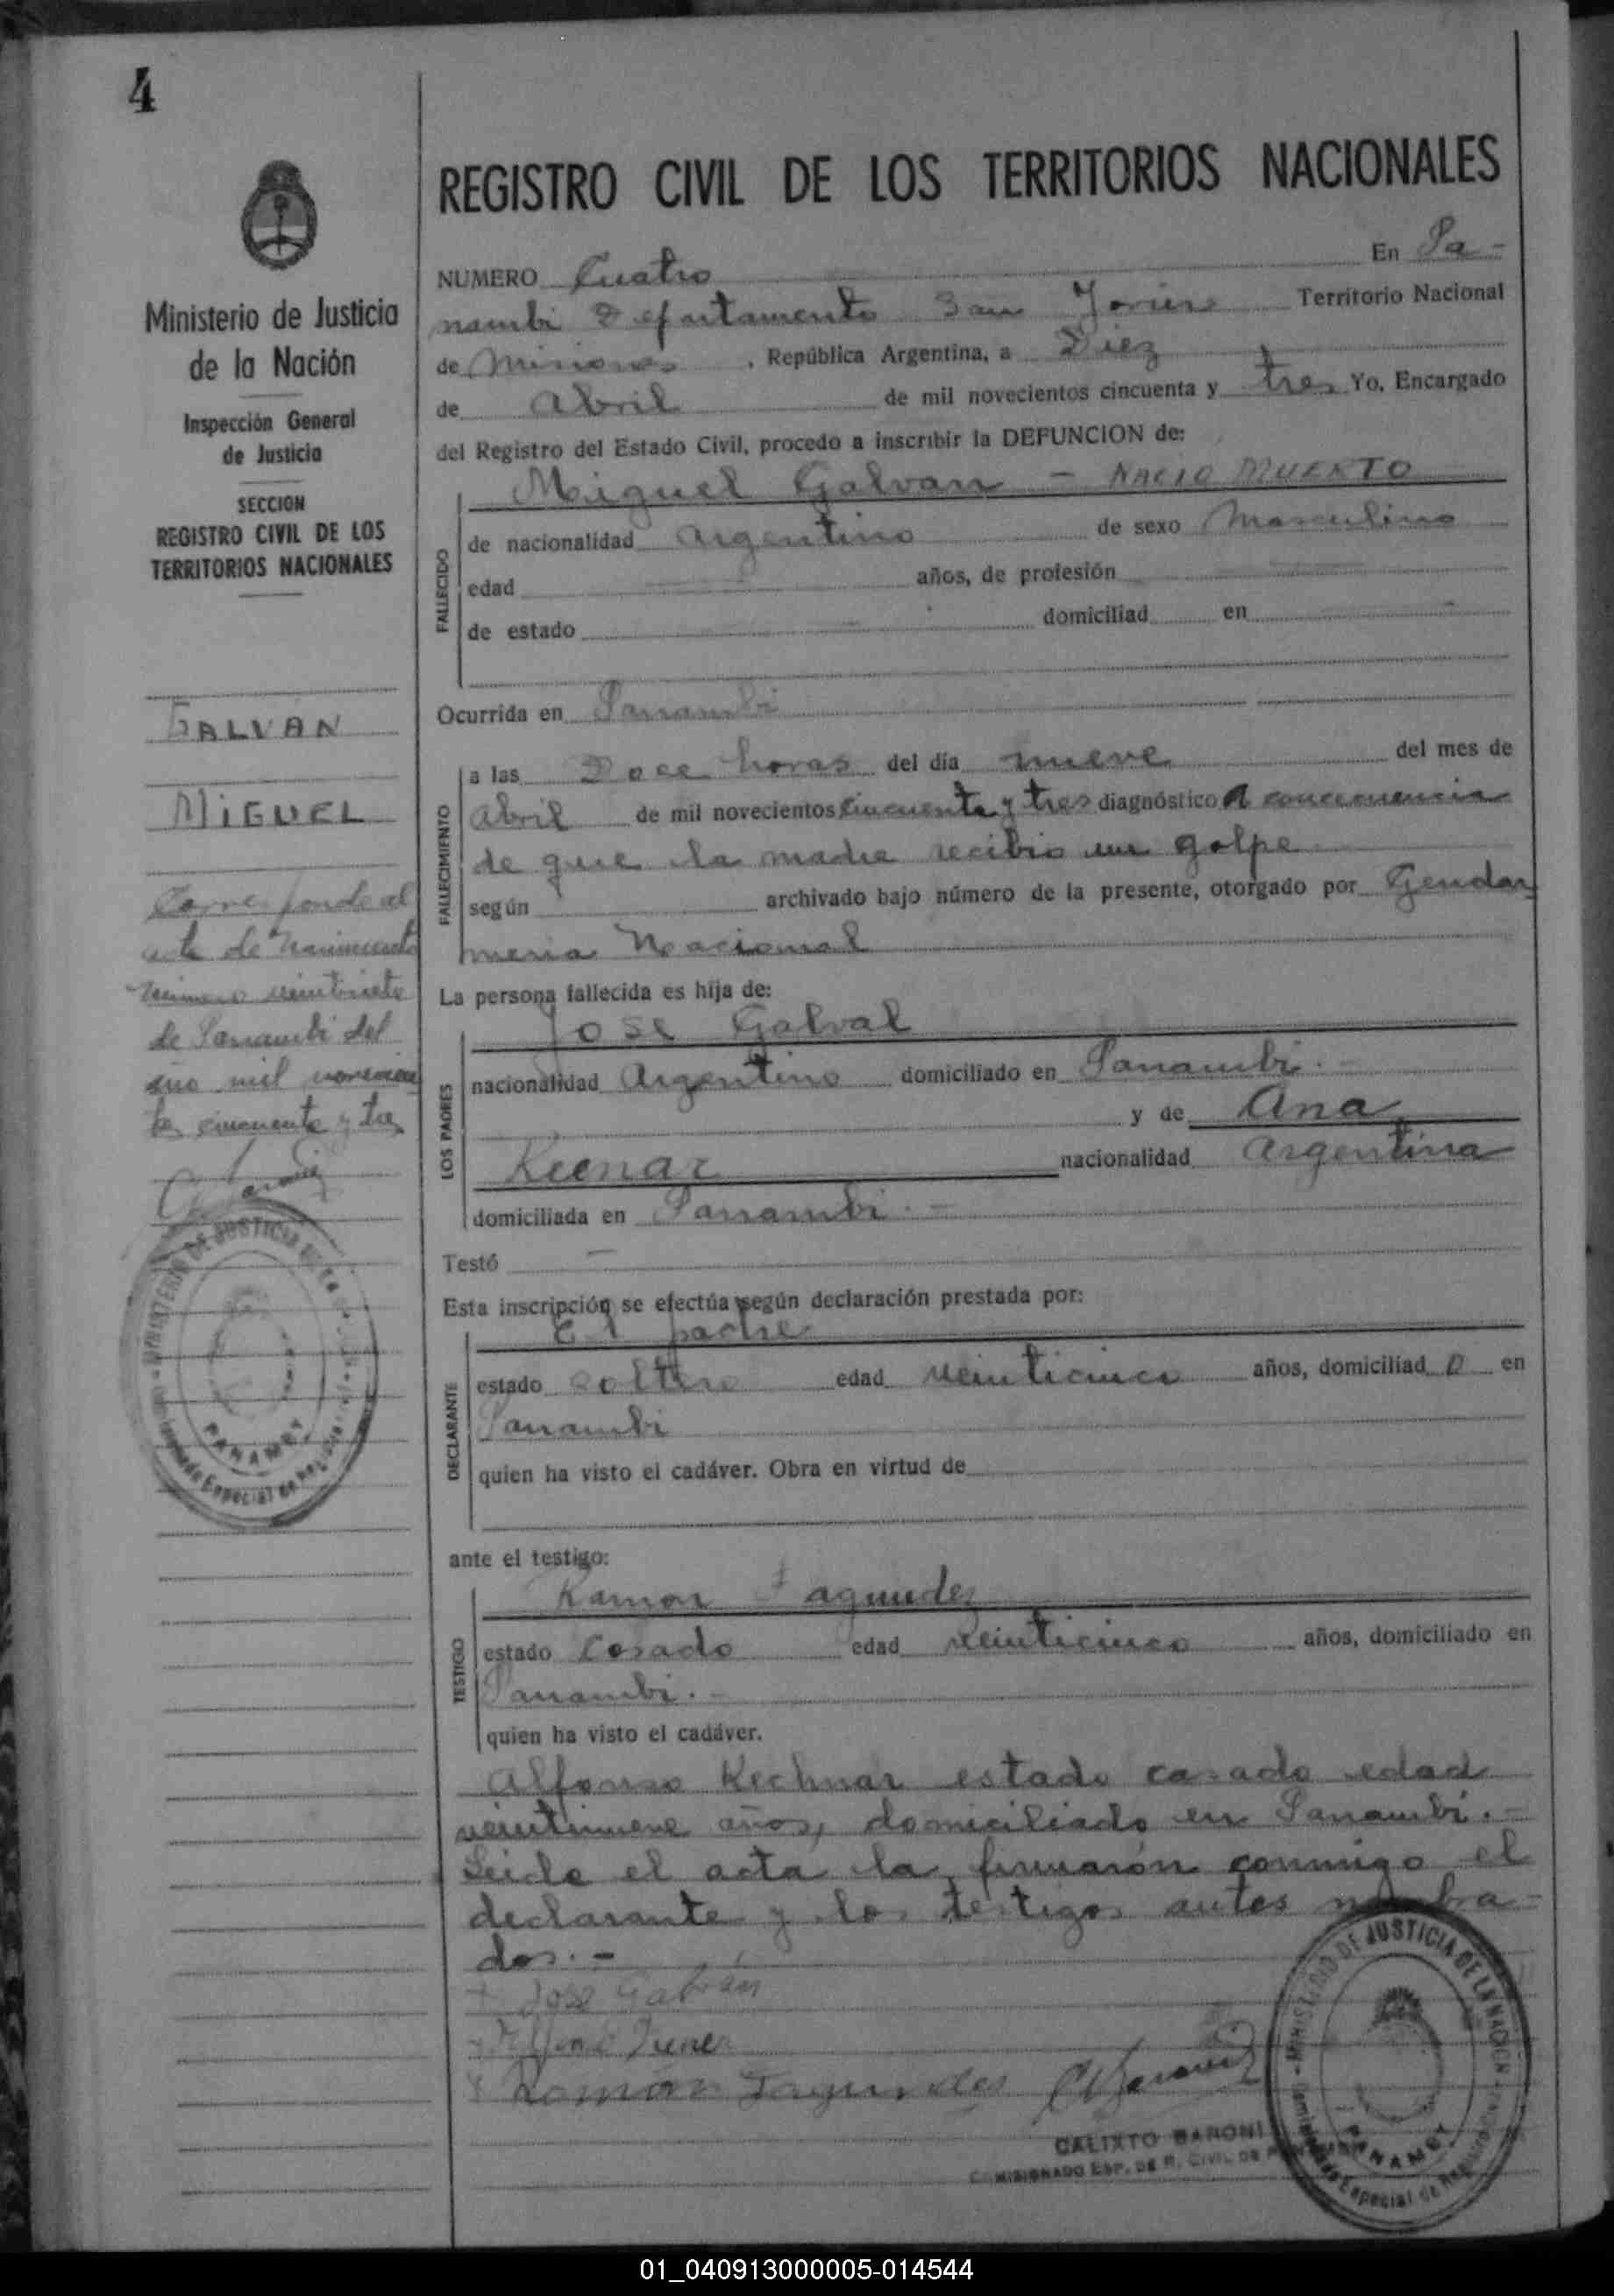 4
REGISTRO CIVIL DE LOS TERRITORIOS NACIONALES
Ministerio de Justicia
de la Nación
Inspección General
de Justicia
SECCION
REGISTRO CIVIL DE LOS
TERRITORIOS NACIONALES
GALVAN
MIGUEL
Corresponde al
acta de Nacimiento
número veintisiete
de Panambi del
año mil novecien
tos cincuenta y tres
NUMERO Cuatro En Pa-
nambi Departamento San Javier Territorio Nacional
de Misiones, República Argentina, a Diez
de Abril de mil novecientos cincuenta y tres Yo, Encargado
del Registro del Estado Civil, procedo a inscribir la DEFUNCION de:
Miguel Galvan - NACIO MUERTO
FALLECIDO
de nacionalidad Argentino de sexo Masculino
edad años, de profesión
de estado domiciliad en
Ocurrida en Panambi
FALLECIMIENTO
a las Doce horas del día nueve del mes de
Abril de mil novecientos cincuenta y tres diagnóstico A concecuencia
de que la madre recibio un golpe
según archivado bajo número de la presente, otorgado por Gendar
meria Nacional
La persona fallecida es hija de:
LOS PADRES
Jose Galval
nacionalidad Argentino domiciliado en Panambi.-
y de Ana
Keenar nacionalidad Argentina
domiciliada en Panambi.-
Testó -
Esta inscripción se efectúa según declaración prestada por:
DECLARANTE
El padre
estado soltero edad veinticinco años, domiciliad o en
Panambi
quien ha visto el cadáver. Obra en virtud de
ante el testigo:
TESTIGO
Ramon Fagundes
estado Casado edad veinticinco años, domiciliado en
Panambi.-
quien ha visto el cadáver.
Alfonso Kechnar estado casado edad
veintinueve años, domiciliado en Panambi.-
Leida el acta la firmaron conmigo el
declarante y los testigos antes nombra-
dos.-
Jose Galván
Ramon Fagundes
CALIXTO BARONI
COMISIONADO ESP. DE R. CIVIL DE
MINISTERIO DE JUSTICIA DE LA NACION
PANAMBI
01_040913000005-014544